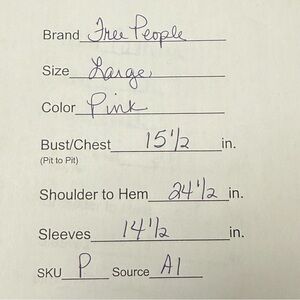 Brand Free People
Size Large
Color Pink
Bust/Chest 15 1/2 in.
(Pit to Pit)
Shoulder to Hem 24 1/2 in.
Sleeves 14 1/2 in.
SKU P Source A1